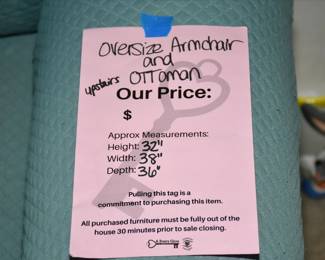 Oversize Armchair
and
upstairs OTTOMAN
Our Price:
$
Approx Measurements:
Height: 32"
Width: 38"
Depth: 36"
Pulling this tag is a
commitment to purchasing this item.
All purchased furniture must be fully out of the
house 30 minutes prior to sale closing.